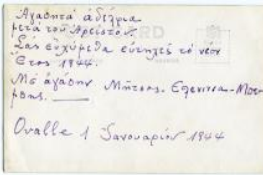 Ἀγαπητά ἀδέλφια
μετά τοῦ Χρίστον.
Σας εὐχόμεθα εὐτυχές τό νέον
Ἔτος 1944.
Μέ ἀγάπην Μῆτσος - Ελενίτσα -
Ovalle 1 Ιανουαρίου 1944
CARD